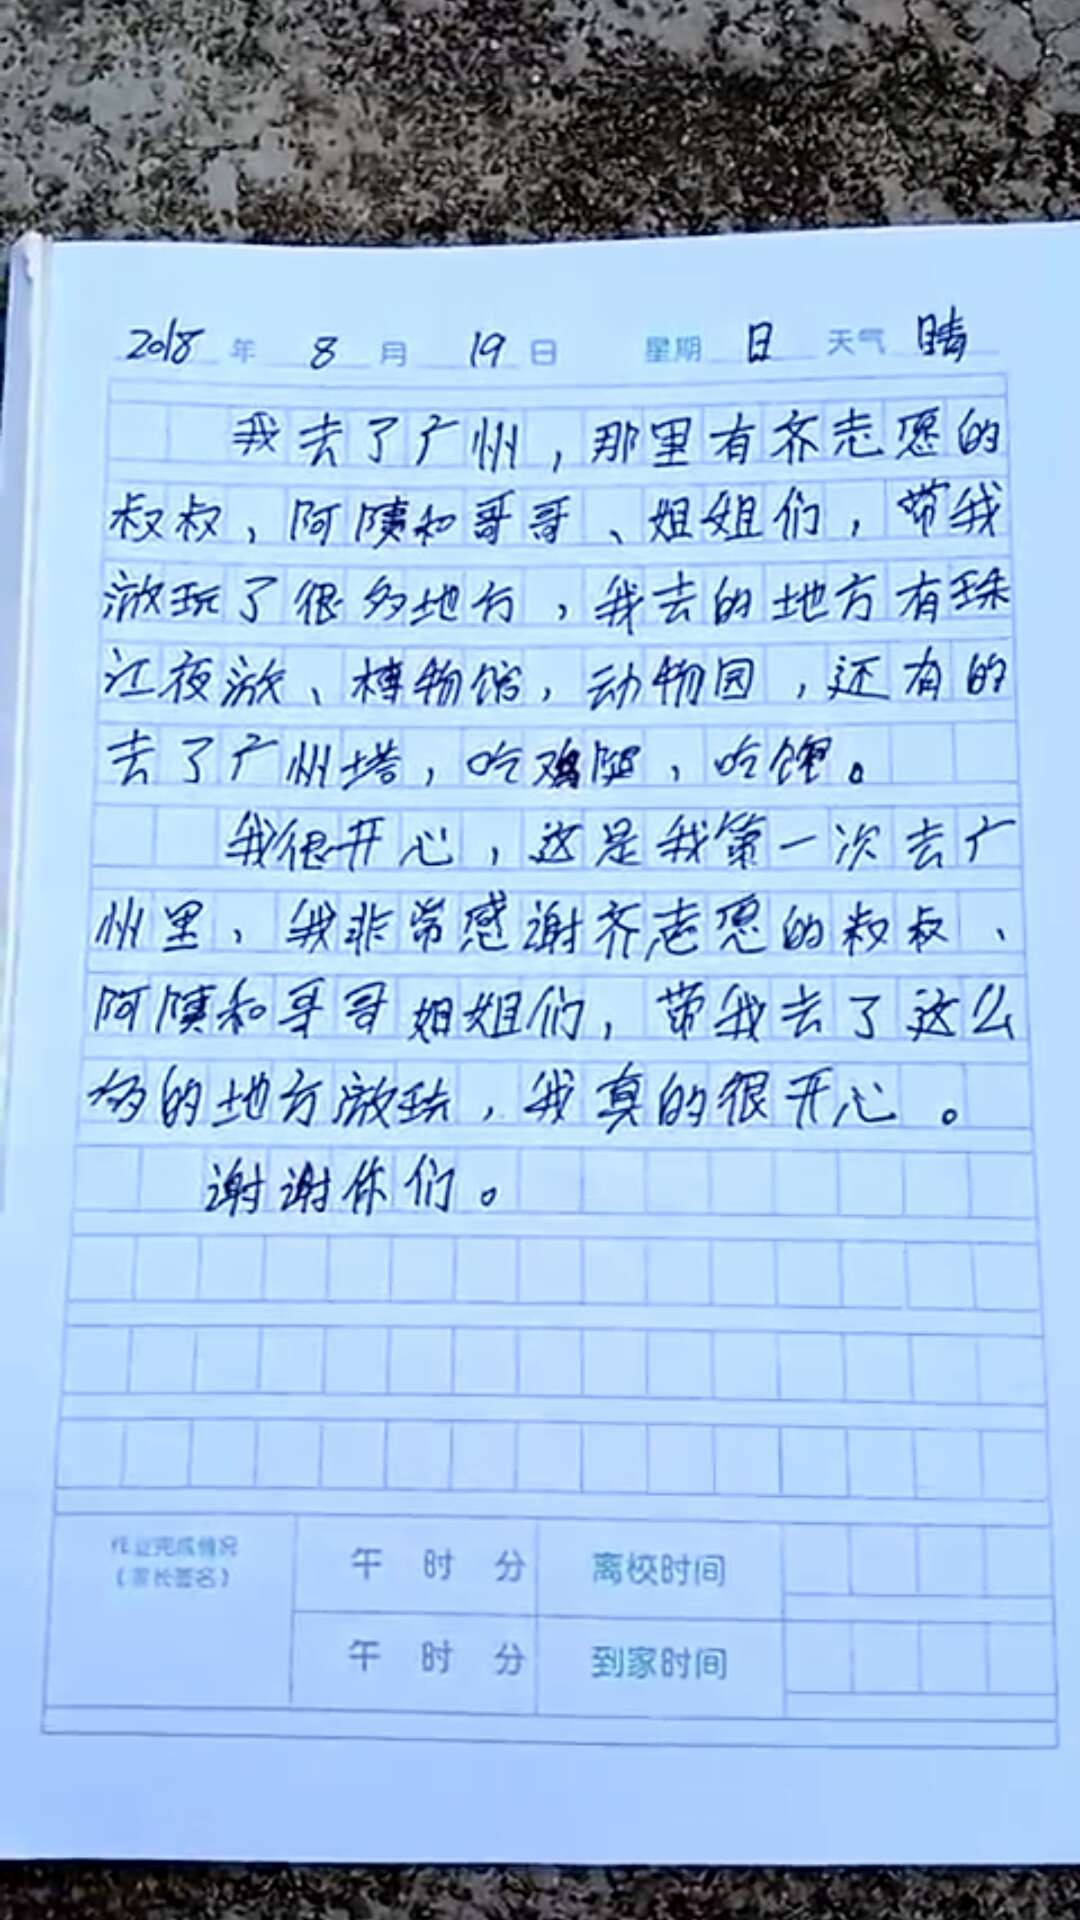 2018年 8月 19日 星期日 天气 晴
我去了广州，那里有齐志愿的
叔叔、阿姨和哥哥、姐姐们，带我
游玩了很多地方，我去的地方有珠
江夜游、博物馆，动物园，还有的
去了广州塔，吃鸡腿，吃馇。
我很开心，这是我第一次去广
州里、我非常感谢齐志愿的叔叔、
阿姨和哥哥姐姐们，带我去了这么
多的地方游玩，我真的很开心。
谢谢你们。
作业完成情况
（家长签名）
午 时 分 离校时间
午 时 分 到家时间